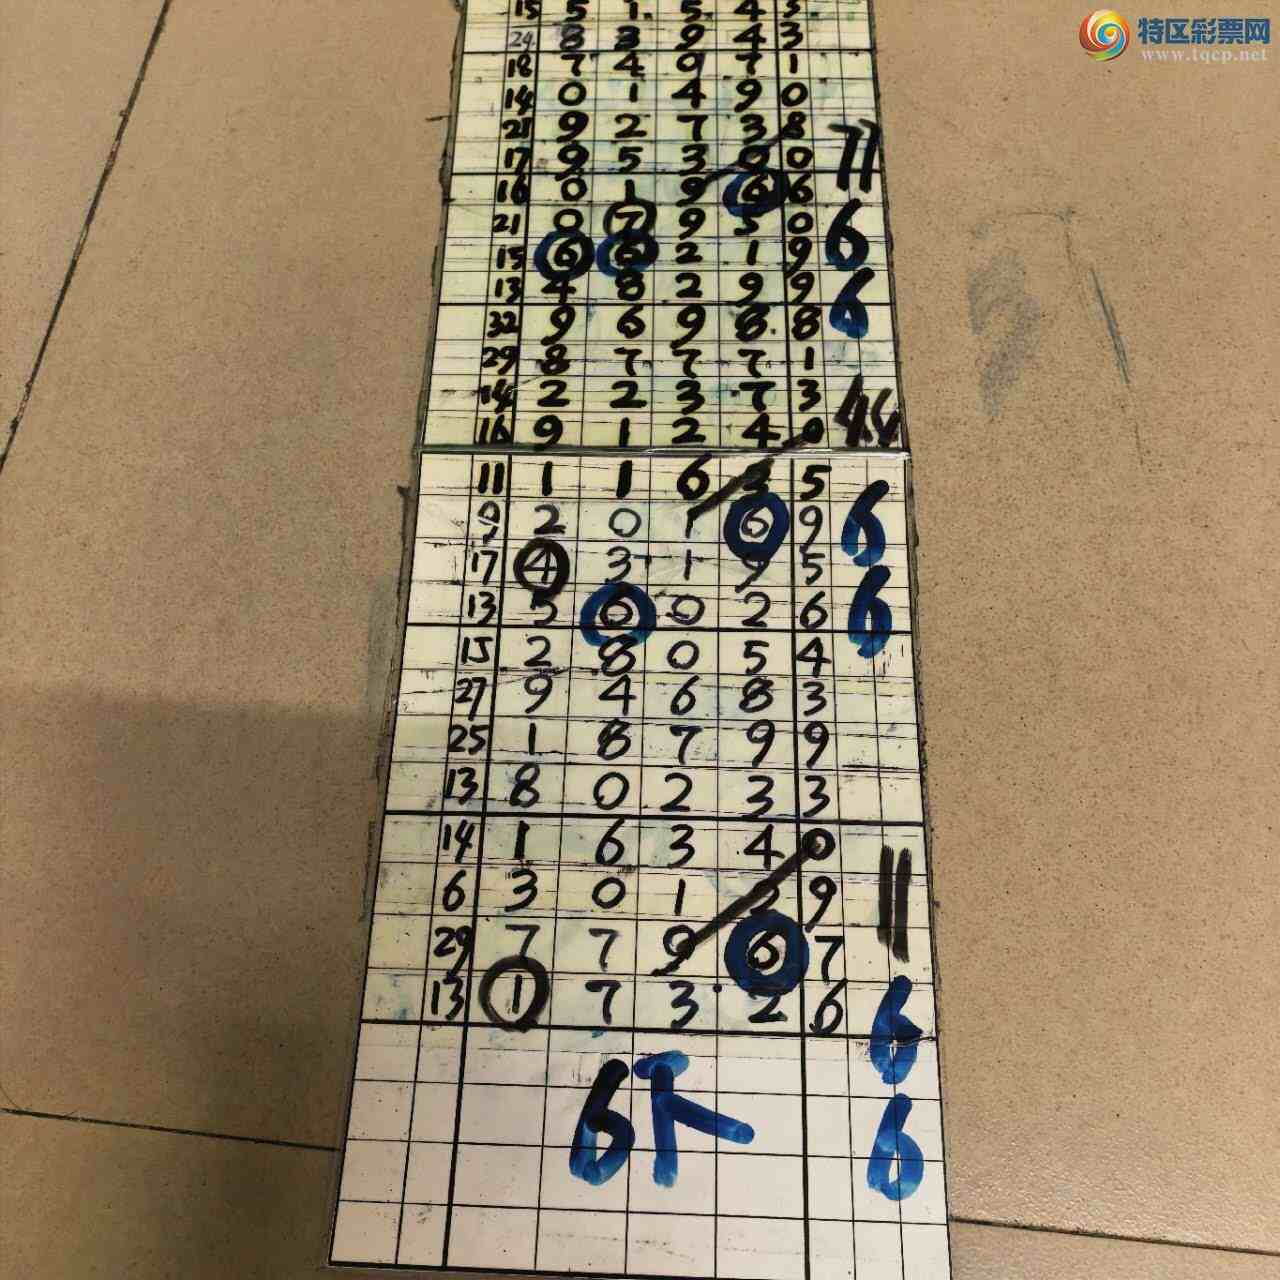 特区彩票网
www.tqcp.net
15 5 1 5 4 3
24 8 3 9 4 3
18 7 4 9 7 1
14 0 1 4 9 0
21 9 2 7 3 8 77
17 9 5 3 0 0
16 0 1 9 6 6
21 0 7 9 5 0 6
15 6 6 2 1 9
13 4 8 2 9 9 6
32 9 6 9 8 8
29 8 7 7 7 1
14 2 2 3 7 3 44
16 9 1 2 4 0
11 1 1 6 3 5
9 2 0 1 6 9 6
17 4 3 1 9 5
13 5 6 0 2 6 6
15 2 8 0 5 4
27 9 4 6 8 3
25 1 8 7 9 9
13 8 0 2 3 3
14 1 6 3 4 0
6 3 0 1 2 9 11
29 7 7 9 6 7
13 1 7 3 2 6 6
6下 6